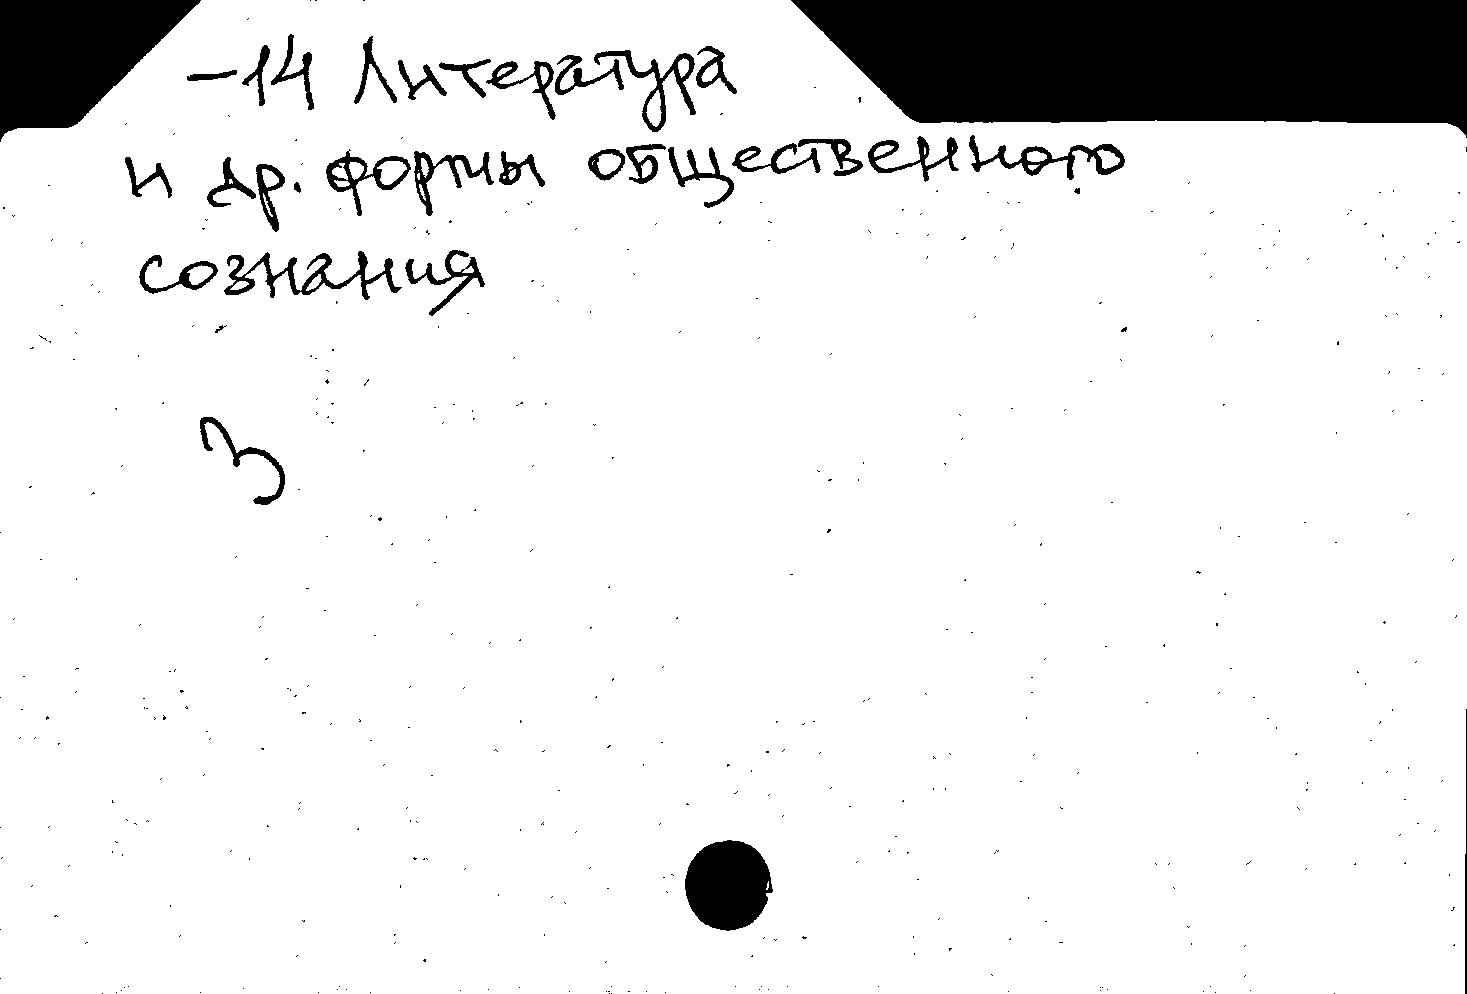 -14 Литература
и др. формы общественного
сознания
3